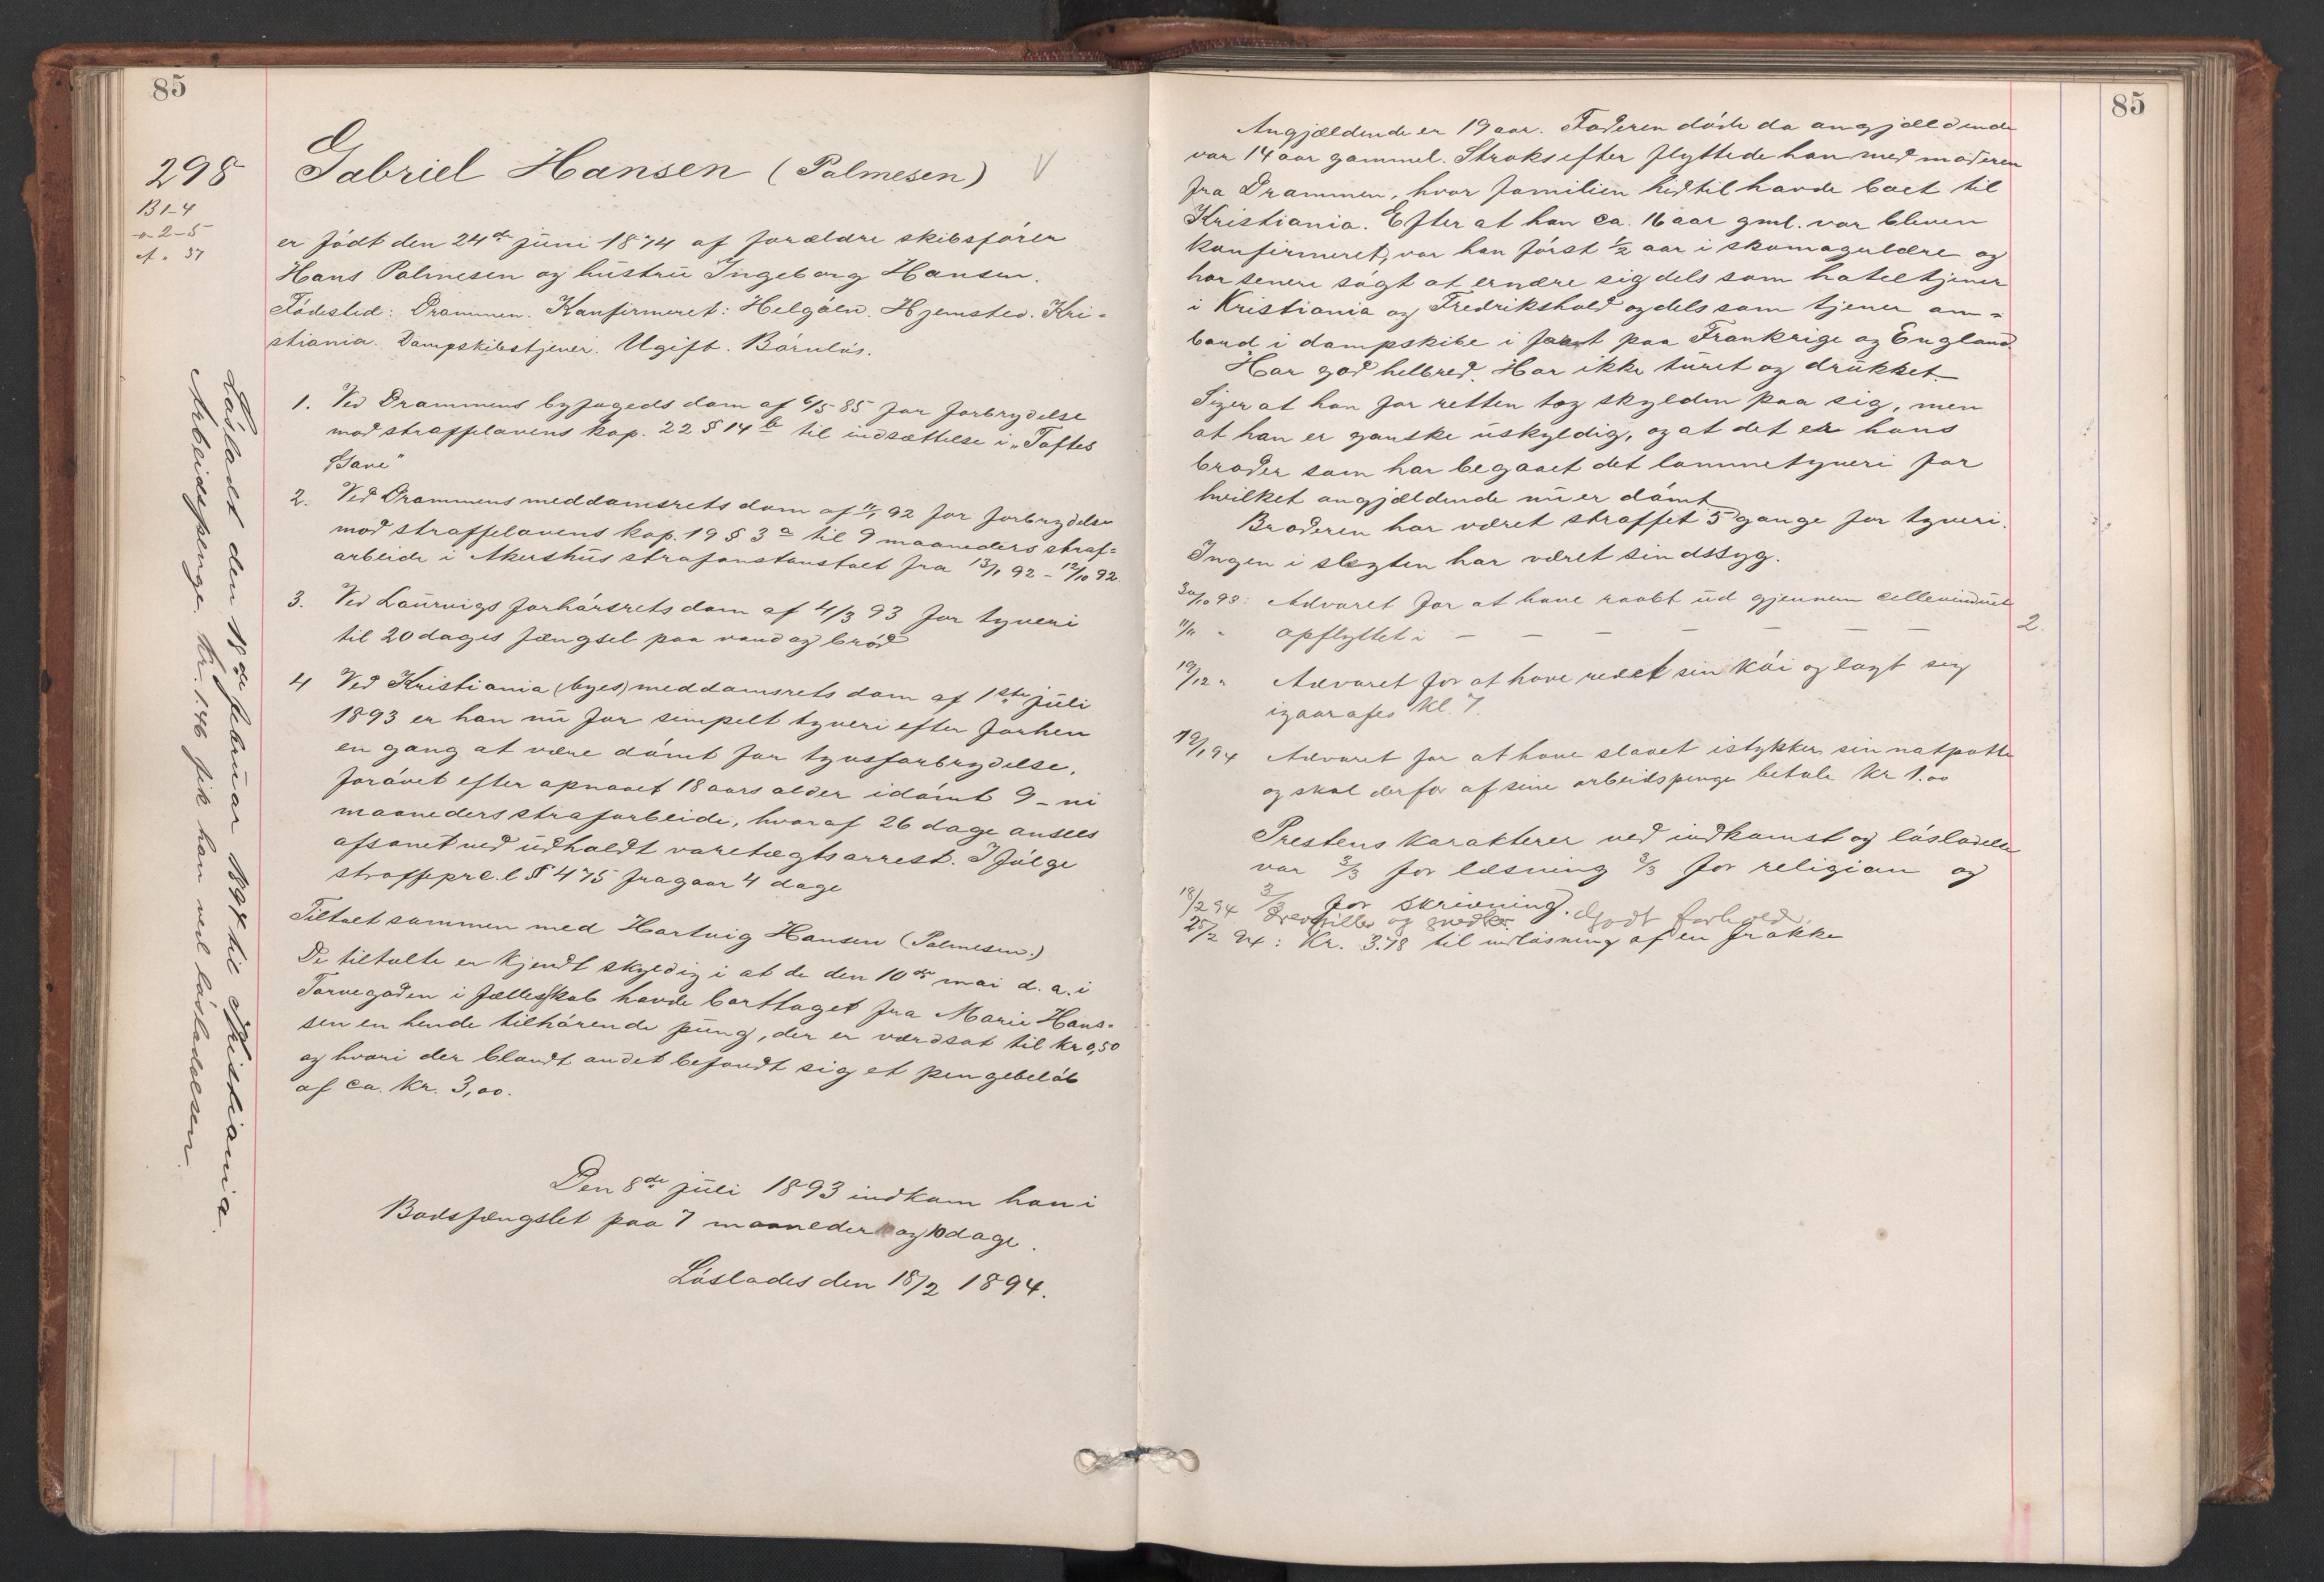 85
298
B 1-4
-"- 2-5
A. 37
Gabriel Hansen (Palmesen) V
er födt den 24de juni 1874 af forældre skibsförer
Hans Palmesen og hustru Ingeborg Hansen.
Födested: Drammen. Konfirmeret: Helgöen. Hjemsted. Kri-
stiania. Dampskibstjener. Ugift. Barnlös.
1. Ved Drammens byfogeds dom af 6/5 85 for forbrydelse
mod straffelovens kap. 22 § 14 b til indsættelse i „Toftes
Gave"
2. Ved Drammens meddomsrets dom af 11/1 92 for forbrydelse
mod straffelovens kap. 19 § 3 a til 9 maaneders straf-
arbeide i Akershus strafanstanstalt fra 13/1 92 - 12/10 92.
3. Ved Laurvigs forhörsrets dom af 4/3 93 for tyveri
til 20 dages fængsel paa vand og bröd
4 Ved Kristiania (byes) meddomsrets dom af 1ste juli
1893 er han nu for simpelt tyveri efter forhen
en gang at være dömt for tyvsforbrydelse,
forövet efter opnaaet 18 aars alder idömt 9 - ni
maaneders strafarbeide, hvoraf 26 dage ansees
afsonet ved udholdt varetægtsarrest. I fölge
straffeprc.l § 475 fragaar 4 dage
Tiltalt sammen med Hartvig Hansen (Palmesen.)
De tiltalte er kjendt skyldig i at de den 10de mai d. a. i
Torvegaden i fællesskab havde borttaget fra Marie Han-
sen en hende tilhörende pung, der er værdsat til kr 0,50
og hvori der blandt andet befandt sig et pengebelöb
af ca. kr. 3,00.
Den 8de juli 1893 indkom han i
Bodsfængslet paa 7 maaneder og 10 dage.
Löslades den 18/2 1894.
Lösladt den 18de februar 1894 til Kristiania.
Arbeidspenge kr. 1.46 fik han ved lösladelsen.
85
Angjældende er 19 aar. Faderen döde da angjældende
var 14 aar gammel. Straks efter flyttede han med moderen
fra Drammen, hvor familien hidtil havde boet til
Kristiania. Efter at han ca. 16 aar gml. var bleven
konfirmeret, var han först 1/2 aar i skomagerlære og
har senere sögt at ernære sig dels som hoteltjener
i Kristiania og Fredrikshald og dels som tjener om-
bord i dampskibe i fart paa Frankrige og England.
Har god helbred. Har ikke turet og drukket.
Siger at han for retten tog skylden paa sig, men
at han er ganske uskyldig, og at det er hans
broder som har begaaet det lommetyveri for
hvilket angjældende nu er dömt.
Broderen har været straffet 5 gange for tyveri.
Ingen i slegten har været sindssyg.
30/10 93: Advaret for at have raabt ud gjennem cellevinduet
11/11 " opflyttet i - - - - - - - 2.
19/12 " Advaret for at have redet sin köi og lagt sig
igaaraftes kl. 7.
19/1 94 Advaret for at have slaaet istykker sin natpotte
og skal derfor af sine arbeidspenge betale kr 1.00
Prestens karakterer ved indkomst og lösladelse
var 3/3 for læsning 3/3 for religion og
3/3 for skrivning.
18/2 94 og snedker. Godt forhold.
25/2 94: Kr. 3.78 til indlösning af en frakke